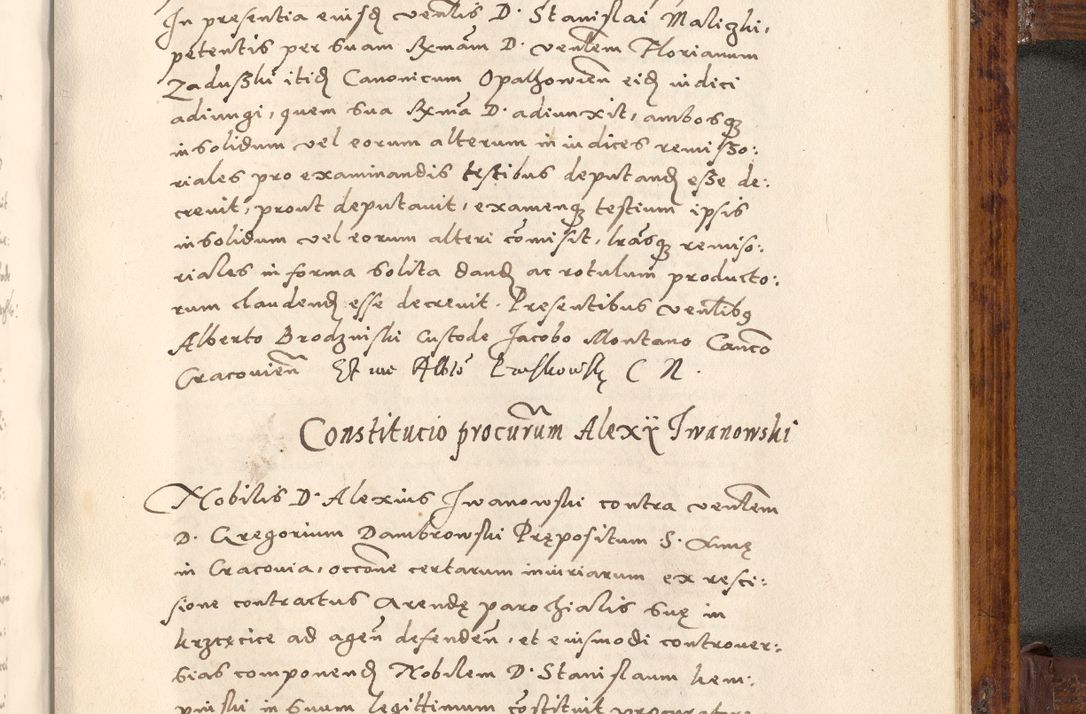 In presentia eiusdem venlis D. Stanislai Maliczki,
petentis per suam Rxmam D. venlem Florianum
Zaduszki itid Canonicum Opathowien eid iudici
adiungi, quem sua Rxma D. adiunxit, ambosq
in solidum vel eorum alterum in iudices remisso:
riales pro examinandis testibus deputand esse de:
creuit, prout deputauit, examenq testium ipsis
in solidum vel eorum alteri comisit, lrasq remiso:
riales in forma solita dand ac rotulum producto:
rum claudend esse decreuit. Presentibus venlibq
Alberto Brodzinski Custode Jacobo Montano Canco
Cracouien Et me Albto C N.
Constitucio procurum Alexÿ Iwanowski
Nobilis D. Alexius Iwanowski contra venlem
D. Gregorium Dambrowski Prępositum S. Annę
in Cracouia, occone certarum iniuriarum exresci:
sione contractus Arendę parochialis suę in
krzcęcice ad agen defenden, et eiusmodi controuer:
sias componend Nobilem D. Stanislaum kem:
pinski in suum legittimum constituit procuratore